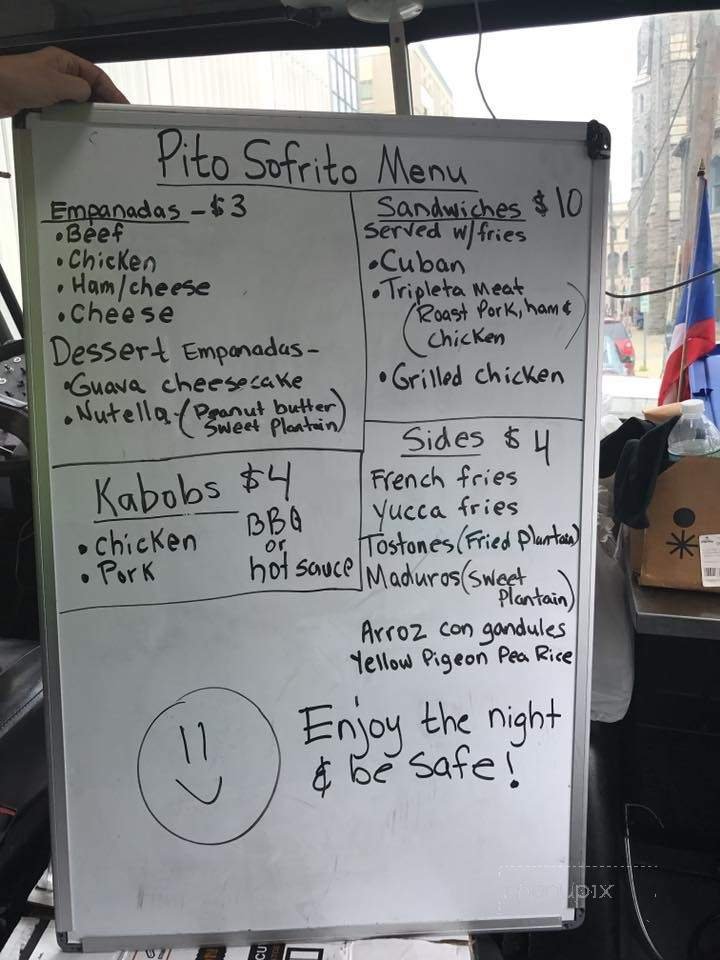 Pito Sofrito Menu
Empanadas - $3
• Beef
• Chicken
• Ham/cheese
• Cheese
Dessert Empanadas -
• Guava cheesecake
• Nutella - (Peanut butter
Sweet Plantain)
Sandwiches $10
Served w/fries
• Cuban
• Tripleta Meat
(Roast Pork, ham &
chicken)
• Grilled chicken
Kabobs $4
• Chicken
• Pork
BBQ
or
hot sauce
Sides $4
French fries
Yucca fries
Tostones (Fried Plantain)
Maduros (Sweet
Plantain)
Arroz con gandules
Yellow Pigeon Pea Rice
Enjoy the night
& be safe!